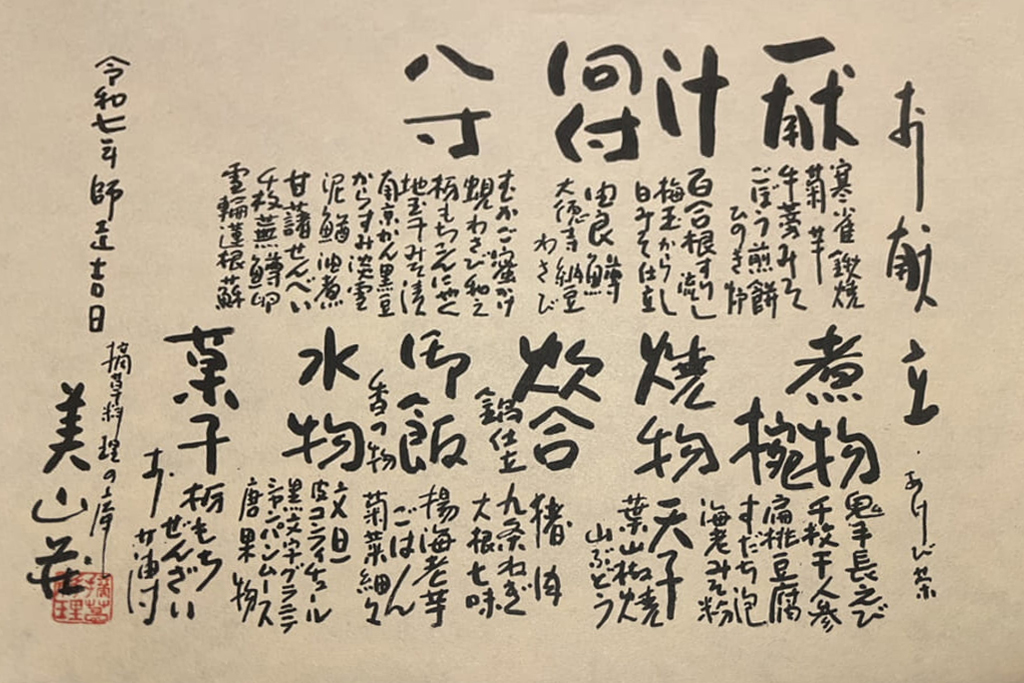 お献立 あけび茶
一献
寒雀鍬焼
菊芋
牛蒡みそ
ごぼう煎餅
ひのき炉
汁
百合根すり流し
梅玉からし
白みそ仕立
向付
由良鱒
大徳寺納豆
わさび
八寸
むかご蜜かけ
蜆わさび和え
栃もちこんにゃく
地玉子みそ漬
南京かん黒豆
からすみ淡雪
泥鰌油煮
甘藷せんべい
千枚蕪鱒卵
雪輪蓮根蘇
煮物椀
鬼手長えび
千枚干人参
扁桃豆腐
すだち泡
海老みそ粉
焼物
天子
葉山椒焼
山ぶどう
炊合
鍋仕立
猪肉
九条ねぎ
大根七味
御飯
香の物
揚海老芋
ごはん
菊菜細々
水物
文旦
皮コンフィチュール
黒文字グラニテ
シャンパンムース
唐果物
菓子
栃もち
ぜんざい
令和七年師走吉日
摘草料理の
美山荘
摘草料理